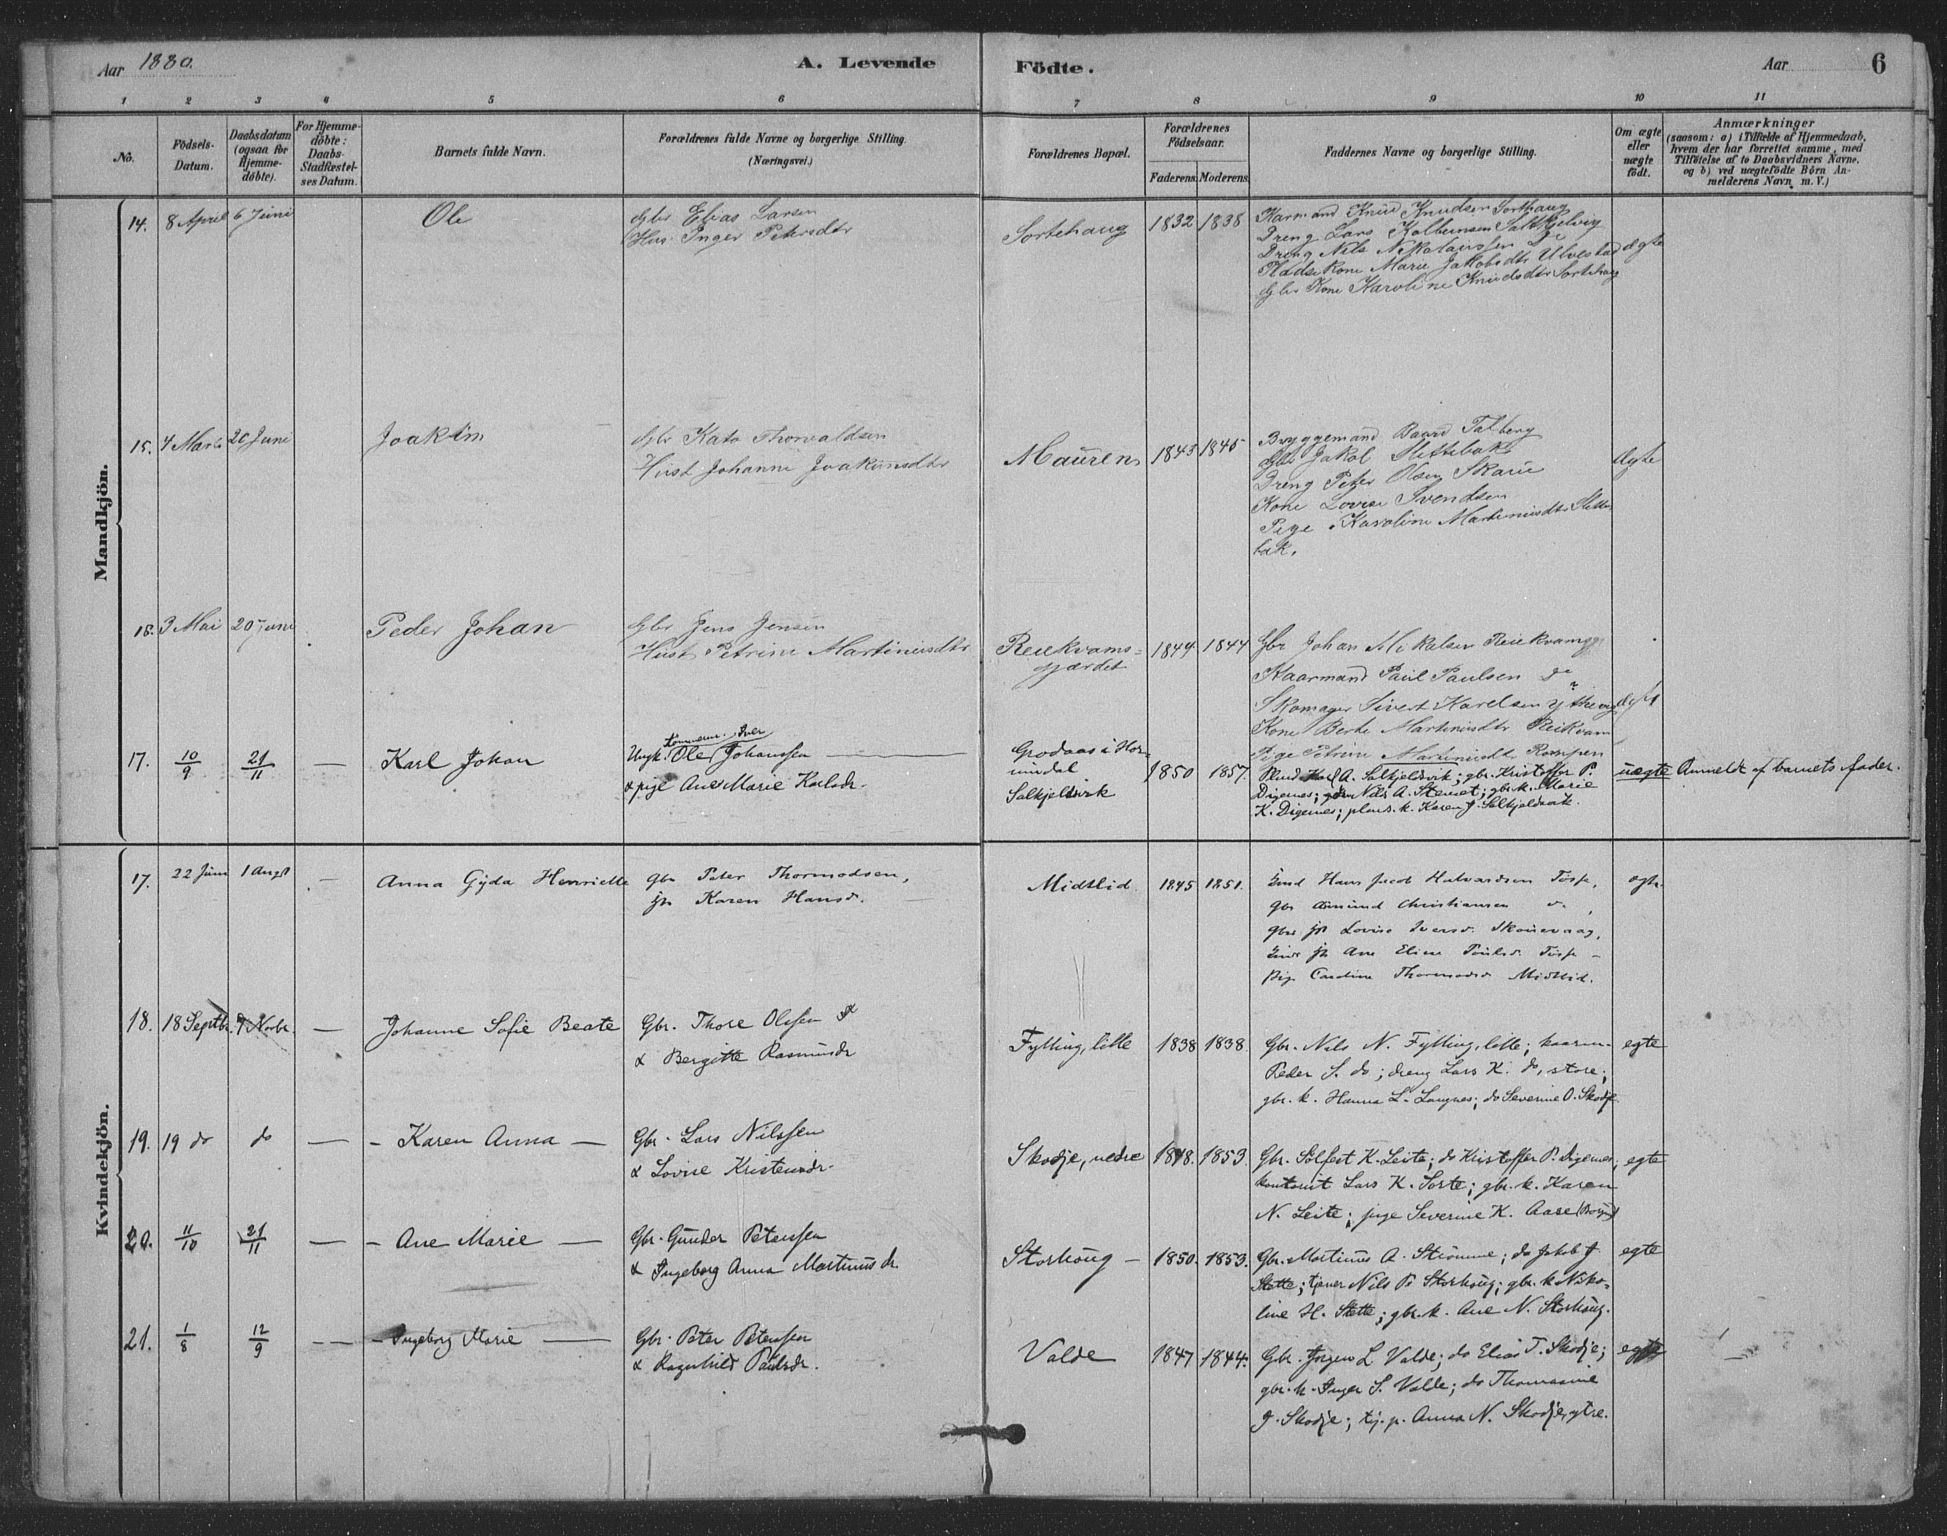 Aar 1880.
A. Levende
Födte.
Aar
6
1 2 3 4 5 6 7 8 9 10 11
No.
Födsels-Datum.
Daabsdatum (ogsaa for Hjemme-döbte).
For Hjemme-döbte: Daabs-Stadfæstel-ses Datum.
Barnets fulde Navn.
Forældrenes fulde Navne og borgerlige Stilling.
(Næringsvei.)
Forældrenes Bopæl.
Forældrenes Födselsaar.
Faderens. Moderens.
Faddernes Navne og borgerlige Stilling.
Om ægte eller uægte födt.
Anmærkninger
(saasom: a) i Tilfælde af Hjemmedaab,
hvem der har forrettet samme, med
Tilföielse af to Daabsvidners Navne.
og b) ved uægtefödte Börn An-
melderens Navn m. V.)
Mandkjön.
14. 8 April 6 Juni Ole
Gbr Elias Larsen
Hus. Inger Petersdtr
Sortehaug 1832 1838
Karmand Knud Knudsen Sorthaug
Dreng Lars Kolbensen Salthjelvig
Dreng Nils Nikolaussen Do
Pladse Kone Marie Jakobsdtr Ulvestad
Gbr Kone Karoline Knudsdtr Sortehaug
ægte
15. 4 Marts 20 Juni Joakim
Gbr Kato Thorvaldsen
Hust Johanne Joakimsdtr
Mauren 1843 1845
Bryggemand Baard Talberg
Gbr Jakob Slettebak
Dreng Peter Olsen Skarie
Kone Lovise Svendsen
Pige Karoline Martinusdtr Slette
bak.
ægte
16. 3 Mai 20 Juni Peder Johan
Gbr Jens Jensen
Hust Petrine Martinusdtr
Reiekvams-
gjærdet
1844 1844
Gbr Johan Mikelsen Reiekvam
Kaarmand Paul Paulsen do
Skomager Sivert Karelsen
Kone Berte Martinusdtr Reikvam
Pige Petrine Martinusdt Rompen
ægte
17. 10/9 21/11 — Karl Johan
Ungk. Ole Johanssen —
& pige Ane Marie Karlsdr.
Grodaas i Hor-
nindal
Salkjelsvik
1850 1857.
A. Salkjelsvik; gbr. Kristoffer P.
Digernes; Nils A. Stenset; gbr. k. Marie
K. Digernes; plads. k. Karen J. Salkjelsvik.
uægte Anmeldt af barnets fader.
Kvindekjön.
17. 22 Juni 1 Augst — Anna Gyda Henriette
gbr Peter Thormodsen,
h Karen Hansd.
Midtlid 1845 1851.
Hans Jacob Halvardsen Tosse,
Gbr Asmund Christiansen do,
Gbr Lovise Iversd. Skouevaag,
Ane Eline Poulsd. Tosse —
Pig Caroline Thormodsd Midtlid.
egte
18. 18 Septbr. 7 Novbr. — Johanne Sofie Beate
Gbr. Thore Olssen
& Bergitte Rasmusdr
Fylling, lille 1838 1838.
Gbr. Nils N. Fylling, lille; kaarm.
Peder S. do; dreng Lars K. do, store;
gbr. k. Hanna L. Langnes; do Severine O. Skodje
egte
19. 19 do do — - Karen Anna —
Gbr. Lars Nilssen
& Lovise Kristensdr.
Skodje, nedre 1848. 1853.
Gbr. Solfest K. Leite; do Kristoffer P. Digernes;
Lars K. Sorte; gbr. k. Karen
N. Leite; pige Severine K. Aase
egte
20. 11/10 21/11 — - Ane Marie —
Gbr. Gunder Peterssen
& Ingeborg Anna Martinusdr.
Storhoug — 1850. 1853.
Gbr. Martinus A. Strømme; do Jakob J.
Stette; tjener Nils P. Storhoug; gbr. k Niko-
line H. Stette; gbr. k. Ane N. Storhoug.
egte
21. 1/8 12/9 — - Ingeborg Marie —
Gbr. Peter Peterssen
& Ragnhild Paulsdr.
Valde 1847 1844.
Gbr. Jørgen L Valde; do Elias T. Skodje;
gbr. k. Inger S. Valde; do Thomasine
J. Skodje; tj. p. Anna N. Skodje, ytre.
egte